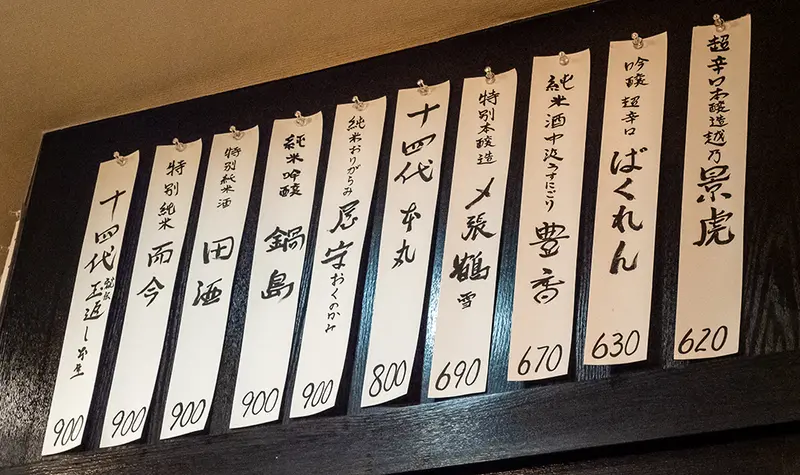 超辛口本醸造越乃景虎 620
吟醸 超辛口 ばくれん 630
純米酒中汲うすにごり 豊香 670
特別本醸造 〆張鶴 雪 690
十四代 本丸 800
純米おりがらみ 屋守 おくのかみ 900
純米吟醸 鍋島 900
特別純米酒 田酒 900
特別純米 而今 900
十四代 玉返し 900